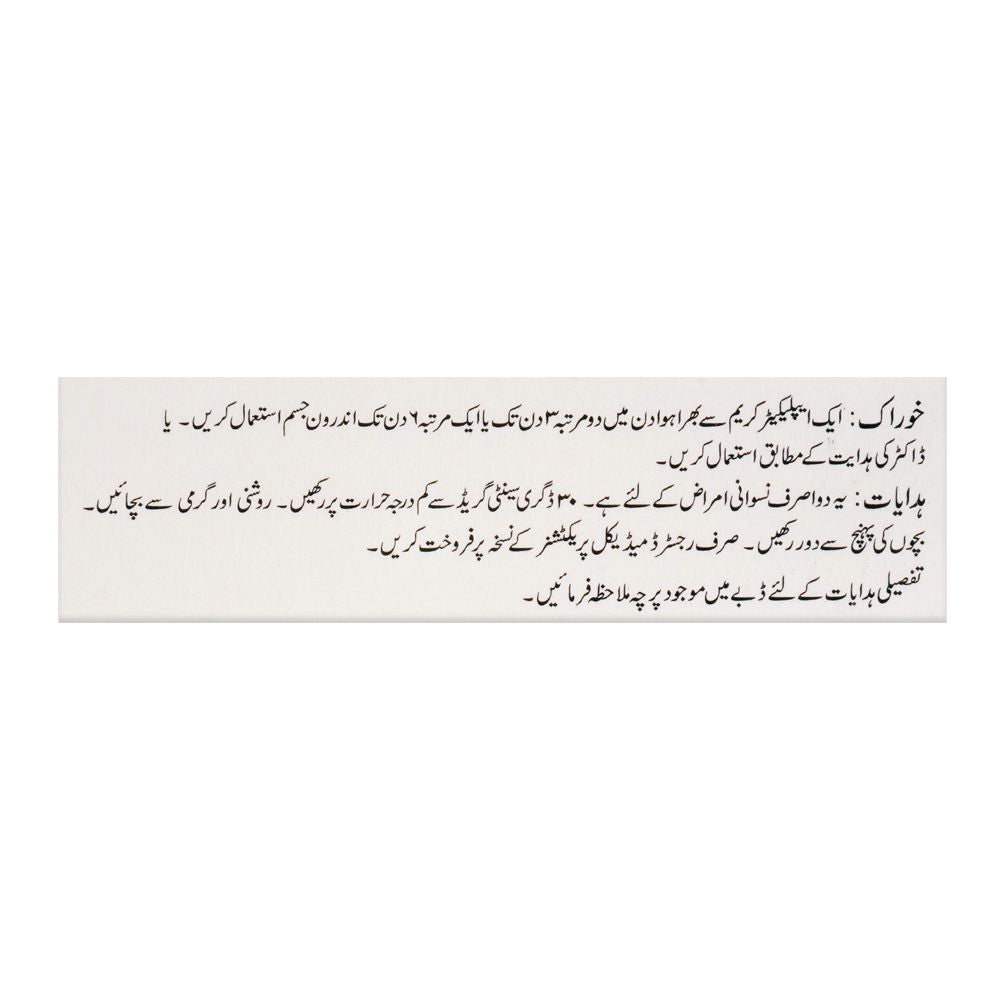 خوراک: ایک ایپلیکیٹر کریم سے بھرا ہوا دن میں دو مرتبہ ۳ دن تک یا ایک مرتبہ ۶ دن تک اندرون جسم استعمال کریں۔ یا
ڈاکٹر کی ہدایت کے مطابق استعمال کریں۔
ہدایات: یہ دوا صرف نسوانی امراض کے لئے ہے۔ ۳۰ ڈگری سینٹی گریڈ سے کم درجہ حرارت پر رکھیں۔ روشنی اور گرمی سے بچائیں۔
بچوں کی پہنچ سے دور رکھیں۔ صرف رجسٹرڈ میڈیکل پریکٹشنر کے نسخہ پر فروخت کریں۔
تفصیلی ہدایات کے لئے ڈبے میں موجود پرچہ ملاحظہ فرمائیں۔